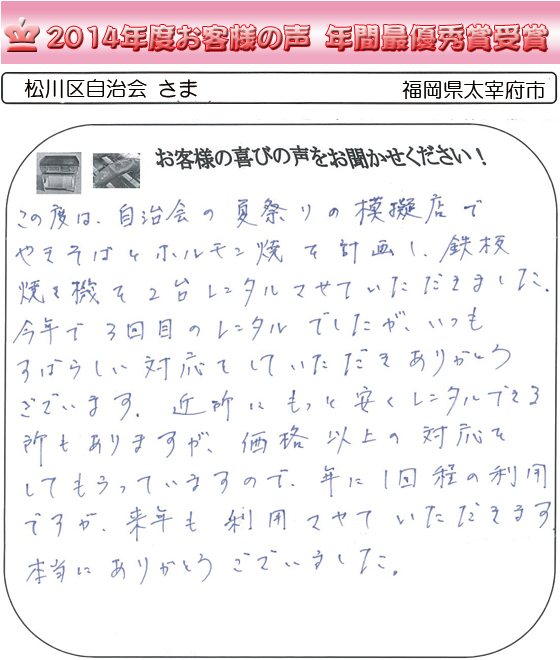 2014年度お客様の声 年間最優秀賞受賞
松川区自治会 さま 福岡県太宰府市
お客様の喜びの声をお聞かせください！
この度は、自治会の夏祭りの模擬店で
やきそばとホルモン焼を計画し、鉄板
焼き機を2台レンタルさせていただきました。
今年で3回目のレンタルでしたが、いつも
すばらしい対応をしていただきありがとう
ございます。近所にもっと安くレンタルできる
所もありますが、価格以上の対応を
してもらっていますので、年に1回程の利用
ですが、来年も利用させていただきます
本当にありがとうございました。